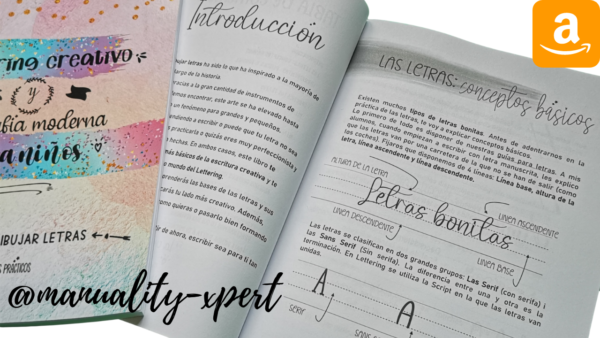 ring creativo
y
fía moderna
a niños
IBUJAR LETRAS
S PRÁCTICOS
Introducción
bujar letras ha sido lo que ha inspirado a la mayoría de
largo de la historia.
racias a la gran cantidad de instrumentos de
emos encontrar, este arte se ha elevado hasta
un fenómeno para grandes y pequeños.
endiendo a escribir o puede que tu letra no sea
practicarla o quizás eres muy perfeccionista y
s hechas. En ambos casos, este libro te
más básicos de la escritura creativa y te
mundo del Lettering.
prenderás las bases de las letras y sus
arás tu lado más creativo. Además,
como quieras o pasarlo bien formando
ir de ahora, escribir sea para ti tan
LAS LETRAS: conceptos básicos
Existen muchos tipos de letras bonitas. Antes de adentrarnos en la
práctica de las letras, te voy a explicar conceptos básicos.
Lo primero de todo es disponer de nuestras guías para letras. A mis
alumnos, cuando empiezan a escribir en letra manuscrita, les explico
que las letras van por una carretera de la que no se han de salir (como
los coches). Fijaros que disponemos de 4 líneas: Línea base, altura de la
letra, línea ascendente y línea descendente.
ALTURA DE LA LETRA
LINEA ASCENDENTE
Letras bonitas
LINEA DESCENDENTE
LINEA BASE
Las letras se clasifican en dos grandes grupos: Las Serif (con serifa) i
las Sans Serif (Sin serifa). La diferencia entre una y otra es la
terminación. En Lettering se utiliza la Script en la que las letras van
unidas.
A A
SERIF
SANS
@manuality-xpert
a